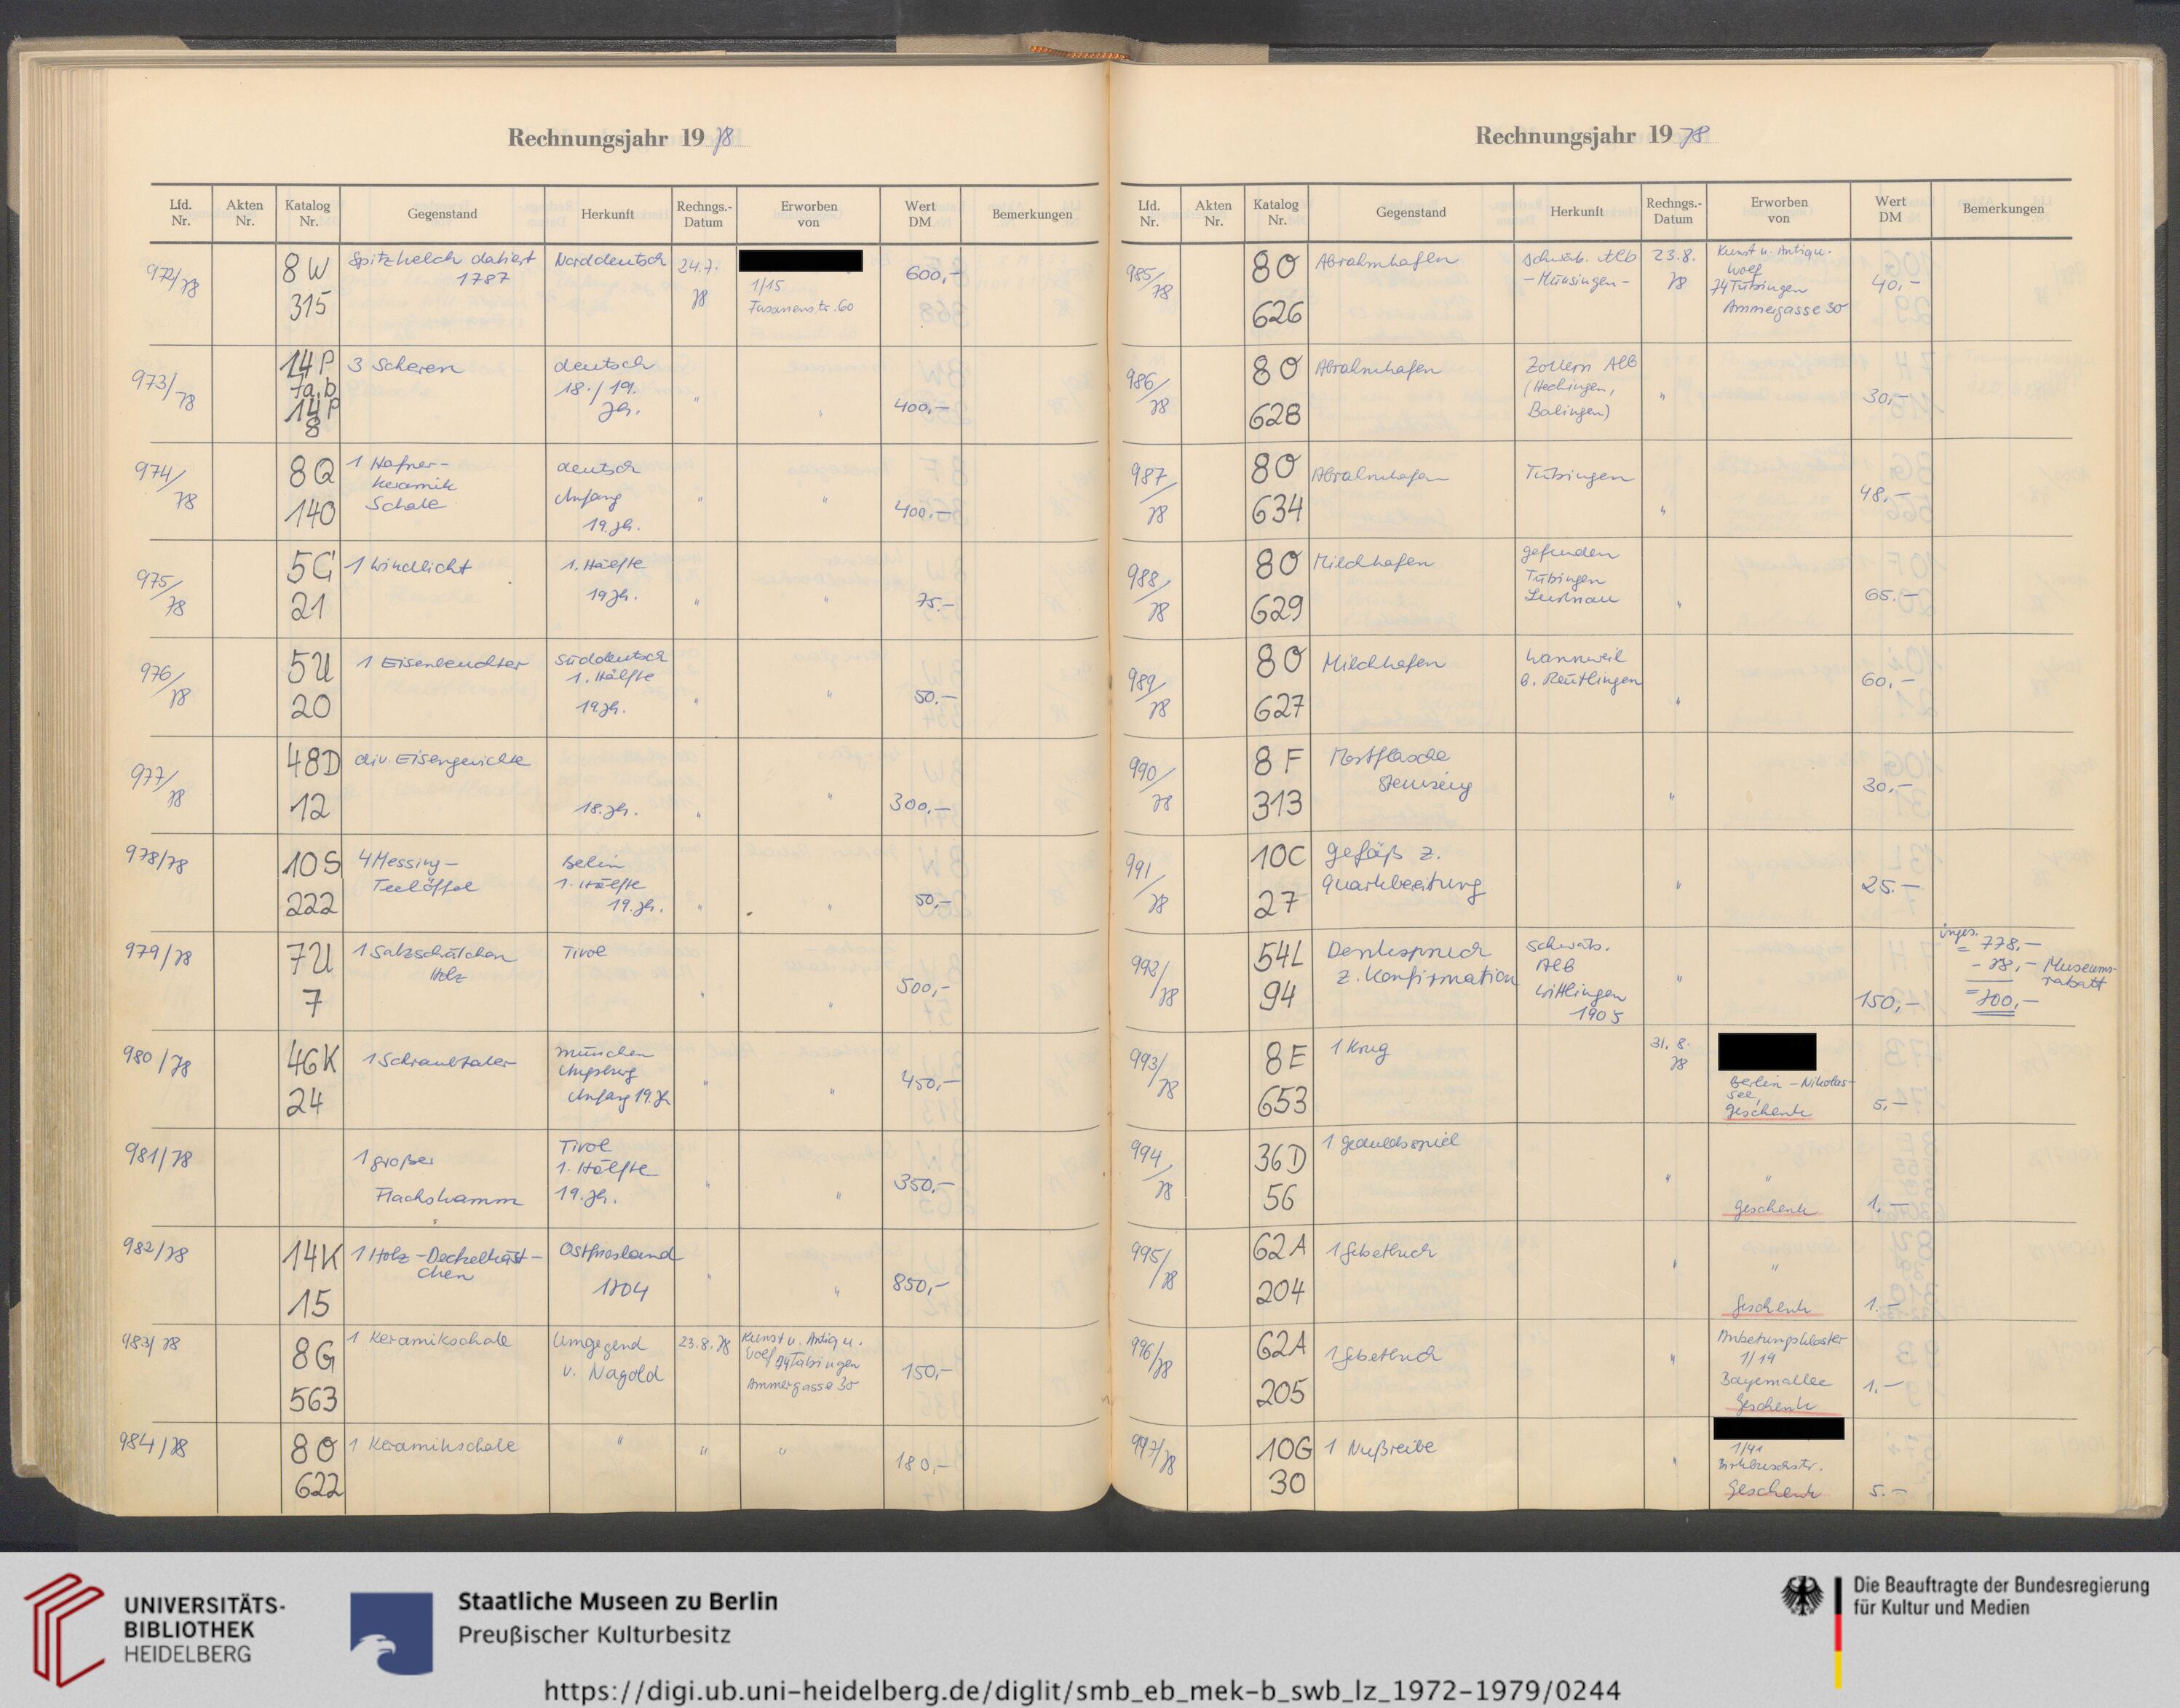 Rechnungsjahr 1978
Lfd. Nr. Akten Nr. Katalog Nr. Gegenstand Herkunft Rechngs.-Datum Erworben von Wert DM Bemerkungen
972/78 8W 315 Spitzkelch datiert 1787 Norddeutsch 24.7.78 1/15 Fasanenstr. 60 600,-
973/78 14P 7a,b 14P 8 3 Scheren deutsch 18./19. Jh. " " 400,-
974/78 8Q 140 1 Hafner-keramik Schale deutsch Anfang 19. Jh. " " 400,-
975/78 5G 21 1 Windlicht 1. Hälfte 19 Jh. " " 75.-
976/78 5U 20 1 Eisenleuchter Süddeutsch 1. Hälfte 19 Jh. " " 50.-
977/78 48D 12 div. Eisengewichte 18. Jh. " " 300,-
978/78 10S 222 4 Messing-Teelöffel Berlin 1. Hälfte 19. Jh. " " 50,-
979/78 7U 7 1 Salzschälchen Holz Tirol " " 500,-
980/78 46K 24 1 Schraubtaler München Augsburg Anfang 19. Jh " " 450,-
981/78 1 großer Flachskamm Tirol 1. Hälfte 19. Jh. " " 350,-
982/78 14K 15 1 Holz-Deckelkäst-chen Ostfriesland 1804 " " 850,-
983/78 8G 563 1 Keramikschale Umgegend v. Nagold 23.8.78 Kunst u. Antiqu. Wolf 74 Tübingen Ammergasse 30 150,-
984/78 8O 622 1 Keramikschale " " " 180,-
Rechnungsjahr 1978
Lfd. Nr. Akten Nr. Katalog Nr. Gegenstand Herkunft Rechngs.-Datum Erworben von Wert DM Bemerkungen
985/78 8O 626 Abrahmhafen Schwäb. Alb - Münsingen - 23.8.78 Kunst u. Antiqu. Wolf 74 Tübingen Ammergasse 30 40,-
986/78 8O 628 Abrahmhafen Zollern Alb (Hechingen, Balingen) " 30,-
987/78 8O 634 Abrahmhafen Tübingen " 48,-
988/78 8O 629 Milchhafen gefunden Tübingen Lustnau " 65.-
989/78 8O 627 Milchhafen Wannweil b. Reutlingen " 60,-
990/78 8F 313 Mostflasche Steinzeug " 30,-
991/78 10C 27 Gefäß z. Quarkbereitung " 25.-
992/78 54L 94 Denkspruch z. Konfirmation Schwäb. Alb Wittlingen 1905 " 150,- insges. = 778,- - 78,- Museums-rabatt = 700,-
993/78 8E 653 1 Krug 31.8.78 Berlin-Nikolas-see, Geschenk 5,-
994/78 36D 56 1 Geduldsspiel " " Geschenk 1.-
995/78 62A 204 1 Gebetbuch " " Geschenk 1.-
996/78 62A 205 1 Gebetbuch " Anbetungskloster 1/19 Bayernallee Geschenk 1.-
997/78 10G 30 1 Nußreibe " 1/41 Birkbuschstr. Geschenk 5.-
UNIVERSITÄTS-
BIBLIOTHEK
HEIDELBERG
Staatliche Museen zu Berlin
Preußischer Kulturbesitz
Die Beauftragte der Bundesregierung
für Kultur und Medien
https://digi.ub.uni-heidelberg.de/diglit/smb_eb_mek-b_swb_lz_1972-1979/0244